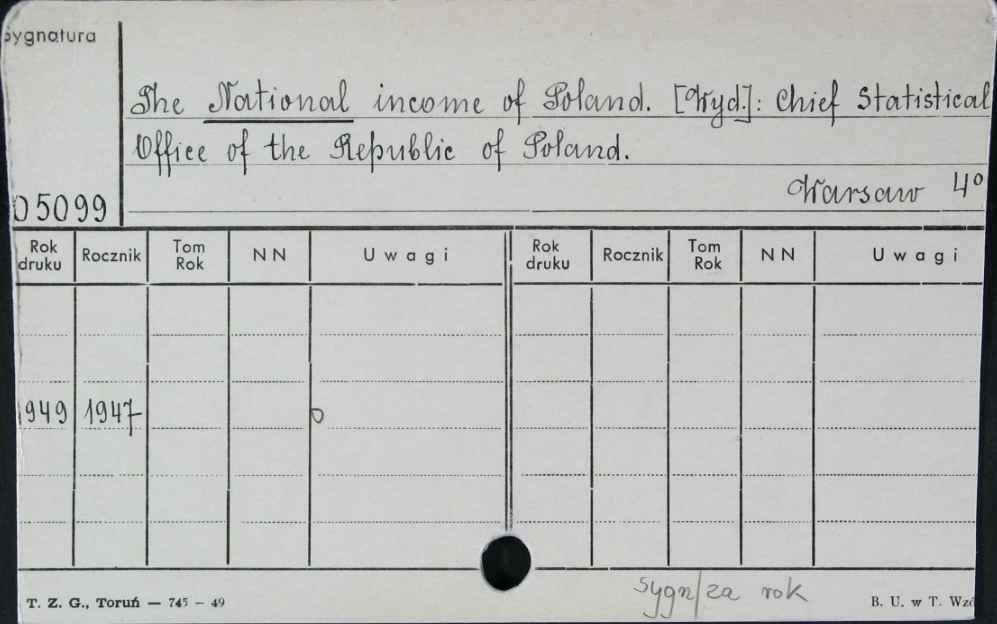 Sygnatura
The National income of Poland. [Wyd.]: Chief Statistical
Office of the Republic of Poland.
Warsaw 4°
05099
Rok druku Rocznik Tom Rok NN Uwagi Rok druku Rocznik Tom Rok NN Uwagi
1949 1947 0
sygn/za rok
T. Z. G., Toruń — 745 — 49
B. U. w T. Wzó